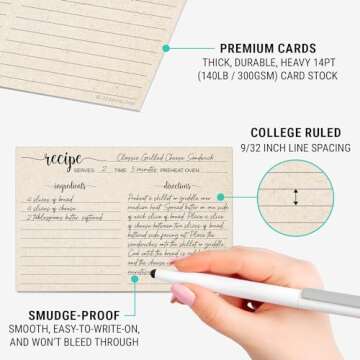 PREMIUM CARDS
THICK, DURABLE, HEAVY 14PT
(140LB / 300GSM) CARD STOCK
COLLEGE RULED
9/32 INCH LINE SPACING
recipe
Classic Grilled Cheese Sandwich
SERVES: 2 TIME: 5 minutes PREHEAT OVEN:
ingredients
directions
4 slices of bread
4 slices of cheese
2 tablespoons butter, softened
Preheat a skillet or griddle over
medium heat. Spread butter on one side
of each slice of bread. Place a slice
of cheese between two slices of bread,
buttered side facing out. Place the
sandwiches onto the skillet or griddle.
Cook until the bread is
and the cheese
minutes
SMUDGE-PROOF
SMOOTH, EASY-TO-WRITE-ON,
AND WON'T BLEED THROUGH